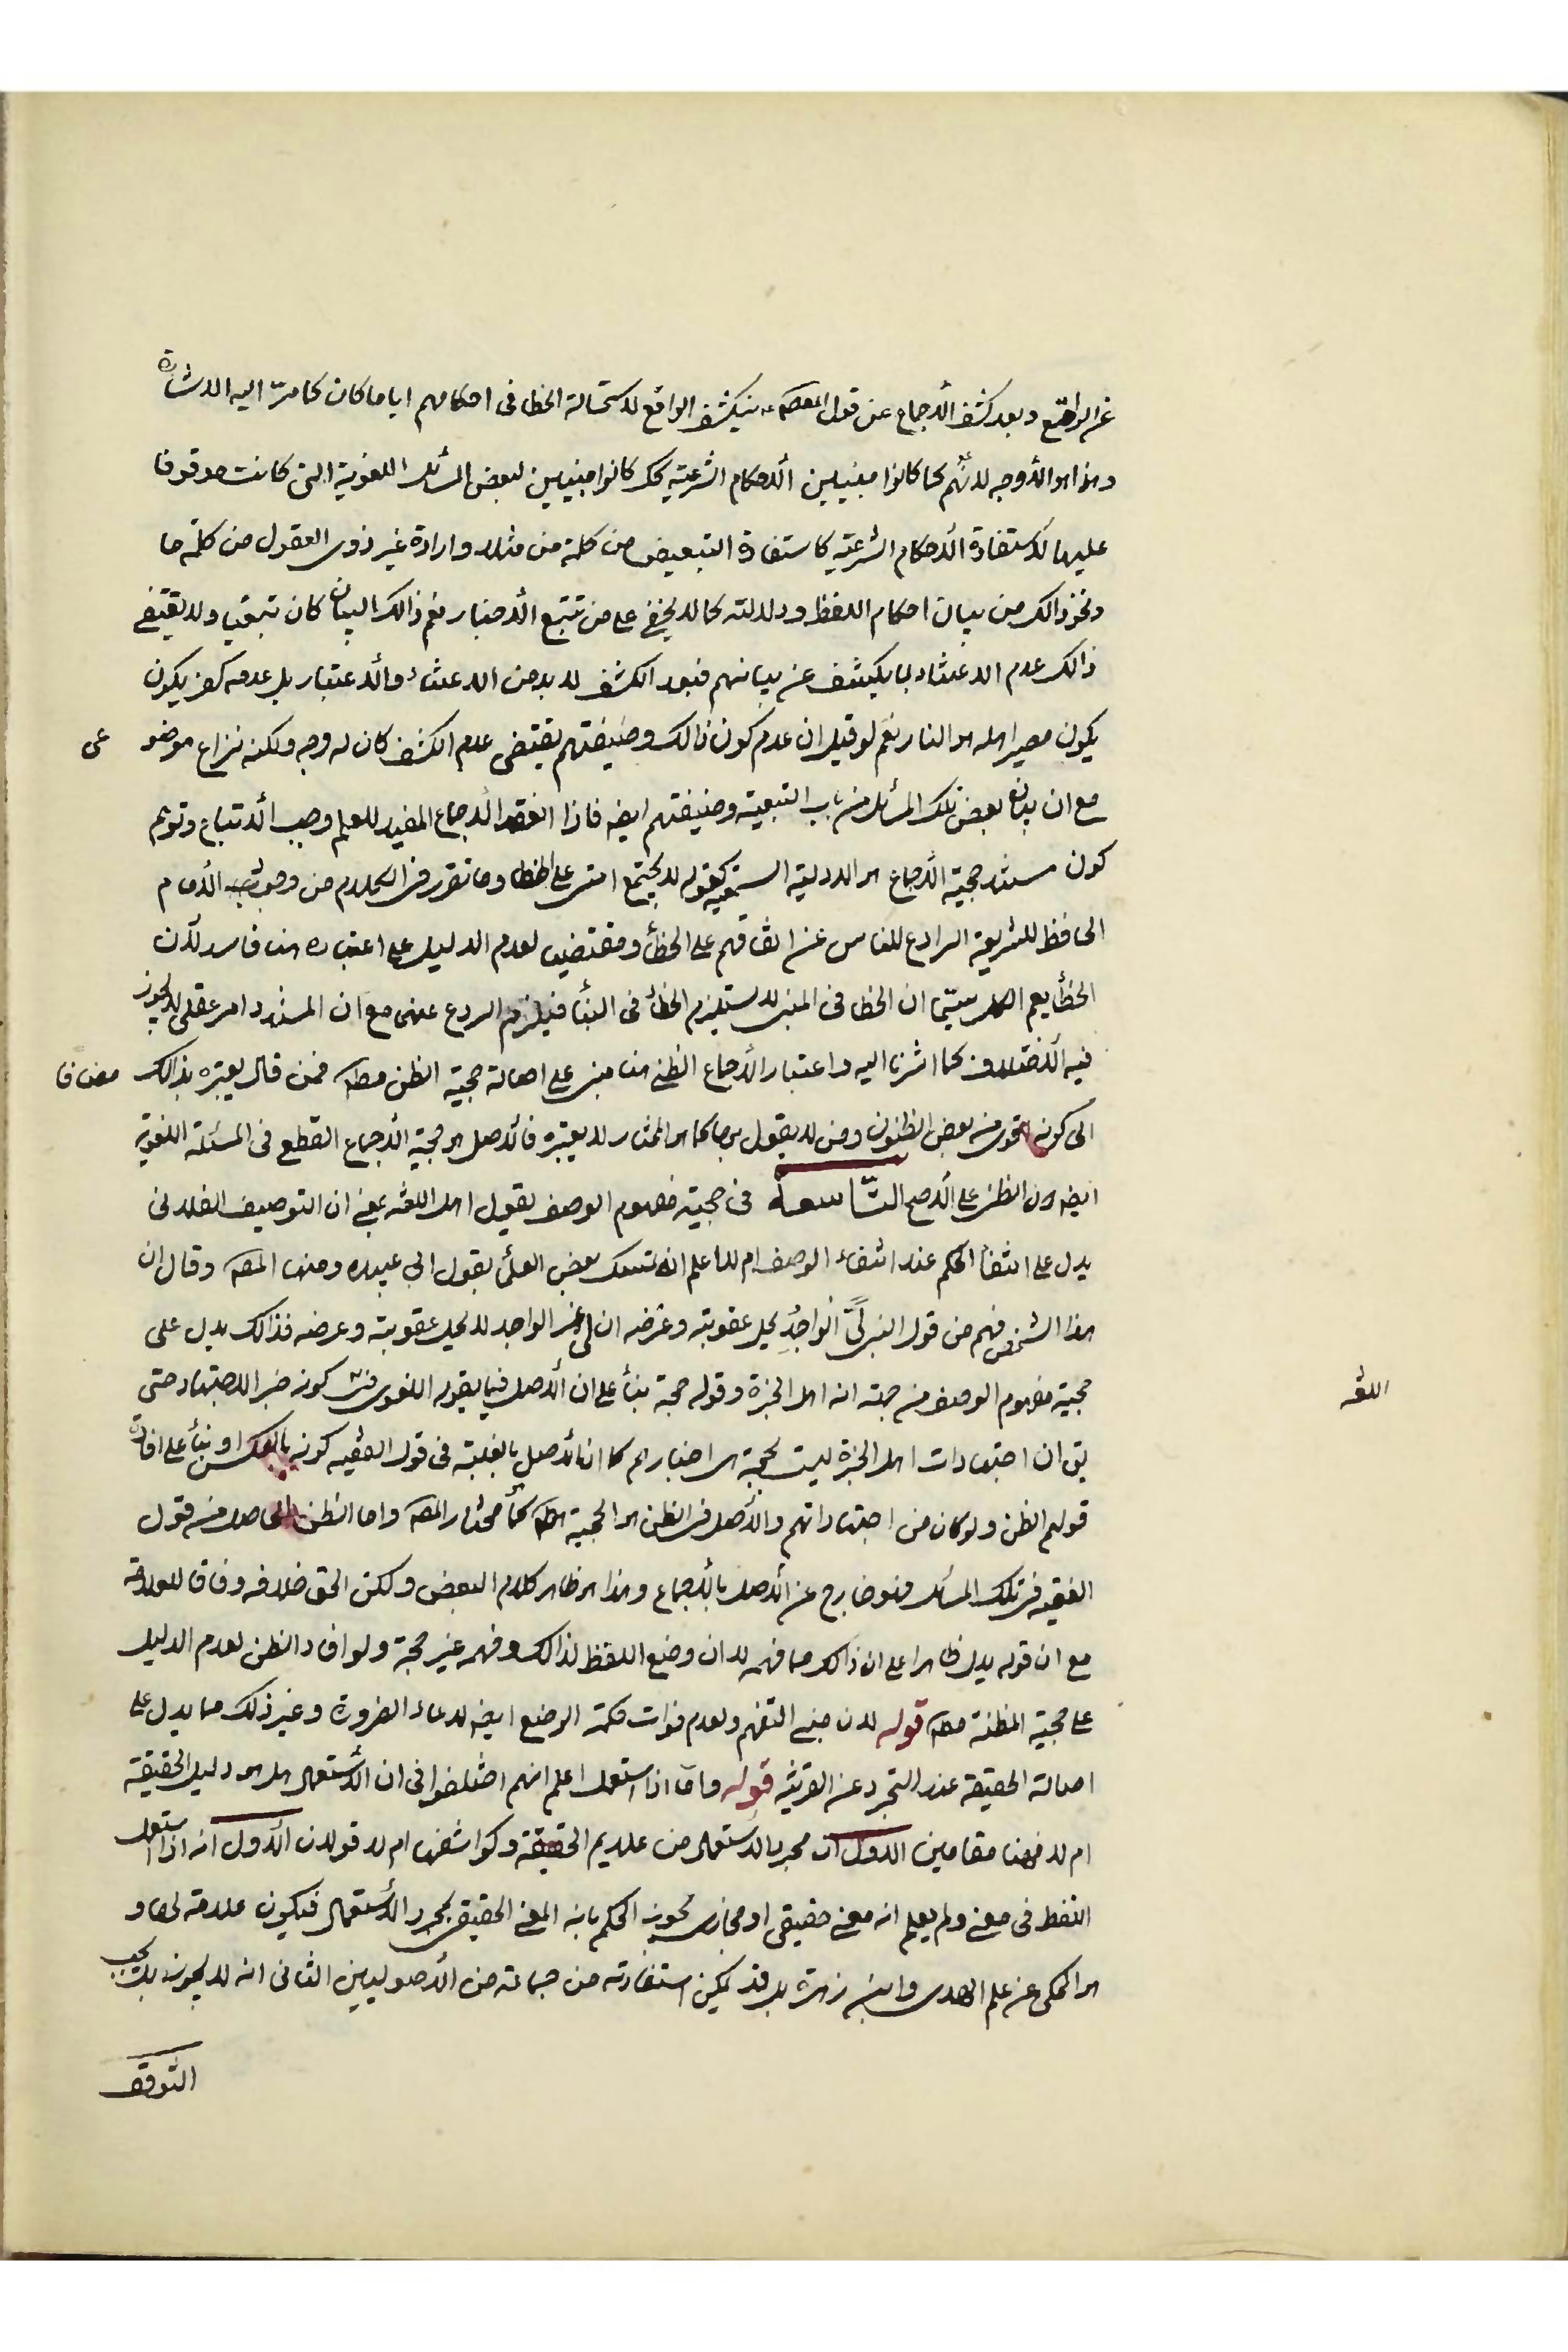 عن الواقع وبعد كشف الأجماع عن قول المعصوم ينكشف الواقع لاستحالة الخطا فى احكامهم اياما كان كما مرّ اليه الاشارة
وهذا هو الأوجه لأنهم كما كانوا مبنيين الأحكام الشرعية كك كانوا مبنيين لبعض المسائل اللغوية التى كانت موقوفا
عليها لاستفادة الأحكام الشرعية كاستفادة التبعيض من كلمة من مثلا وارادة غير ذوى العقول من كلمة ما
ونحو ذالك من بيان احكام اللفظ ودلالته كما لا يخفى على من تتبع الأخبار نعم ذالك البيان كان تبعيا ولا يقتضى
ذالك عدم الاعتناء بما يكشف عن بيانهم فبعد الكشف لا بد من الاعتناء والأعتبار بل عدمه كفر يكون
يكون مصير اهله هو النار نعم لو قيل ان عدم كون ذالك وضيفتهم يقتضى عدم الكشف كان له وجه ولكنه نزاع موضوعى
مع ان بيان بعض تلك المسائل من باب التبعية وضيفتهم ايضه فاذا انعقد الأجماع المفيد للعلم وجب الأتباع وتوهم
كون مستند حجية الأجماع هو الادلية السمعية كقوله لا يجتمع امتى على الخطا وما تقرر فى الكلام من وجوب نصب الأمام
الحافظ للشريعة الرادع للناس عن اتفاقهم على الخطأ ومقتضيها لعدم الدليل على اعتباره هنا فاسد لأن
الخطأ يعم الكل سيّما ان الخطا فى المبنى لا يستلزم الخطأ فى البنأ فيلزم الردع عنهى مع ان المستند امر عقلى لا يجوز
فيه الأختلاف كما اشرنا اليه واعتبار الأجماع الظنى هنا مبنى على اصالة حجية الظن مطه فمن قال يعتبره بذالك مضافا
الى كونه اقوى من بعض الظنون ومن لا يقول بها كما هو المختار لا يعتبره فالأصل هو حجية الأجماع القطع فى المسئلة اللغوية
ايضه دون الظنى على الأصح التّاسعة فى حجية مفهوم الوصف بقول اهل اللغة بمعنى ان التوصيف الفلانى
يدل على انتفأ الحكم عند انتفاء الوصف ام لا اعلم انه تمسك بعض العلمأ بقول ابى عبيده ومنهم المصه وقال ان
هذا الشخص فهم من قول النبى لىّ الواجد يحل عقوبته وعرضه ان لى غير الواجد لا يحل عقوبته وعرضه فذالك يدل على
حجية مفهوم الوصف من جهة انه اهل الخبرة وقوله حجة بنأ على ان الأصل فيما يقوله اللغوى كونه خبر الاجتهاد حتى
اللغة
يق ان اجتهادات اهل الخبرة ليست بحجة بل اخبارهم كما ان الأصل بالغلبة فى قول الفقيه كونه بالعكس او بنأ على افادة
قولهم الظن ولو كان من اجتهاداتهم والأصل فى الظن هو الحجية مطه كما هو مختار المصه واما الظن الحاصل من قول
الفقيه فى تلك المسائل فهو خارج عن الأصل بالأجماع وهذا هو ظاهر كلام البعض ولكن الحق خلافه وفاقا للعلامة
مع ان قوله يدل ظاهرا على ان ذالك مما فهمه لا ان وضع اللفظ لذالك وفهمه غير حجة ولو افاد الظن لعدم الدليل
على حجية المظنة مطه قوله لان مبنى التفهم ولعدم فوات حكمة الوضع ايضه لادعاء الضرورة وغير ذلك مما يدل على
اصالة الحقيقة عند التجرد عن القرينة قوله وامّا اذا استعمل اعلم انهم اختلفوا فى ان الأستعمال هل هو دليل الحقيقة
ام لا فهنا مقامين الأول ان مجرد الأستعمال من علايم الحقيقة وكواشفها ام لا قولان الأول انه اذا استعمل
اللفظ فى معنى ولم يعلم انه معنى حقيقى او مجازى يجوز الحكم بانه المعنى الحقيقى بمجرد الأستعمال فيكون علامة لها و
هو المحكى عن علم الهدى وابن زهرة بل قد يمكن استفادته من جماعة من الأصوليين الثانى انه لا يجوز بل يجب
التوقف